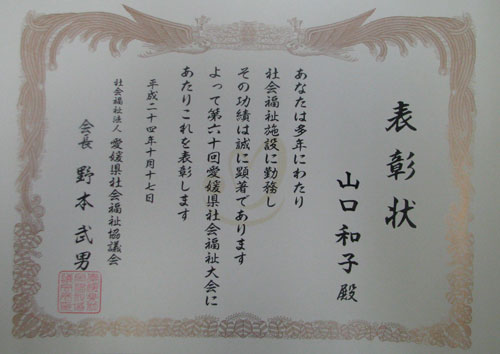 表彰状
山口和子殿
あなたは多年にわたり
社会福祉施設に勤務し
その功績は誠に顕著であります
よって第六十回愛媛県社会福祉大会に
あたりこれを表彰します
平成二十四年十月十七日
社会福祉法人 愛媛県社会福祉協議会
会長 野本武男